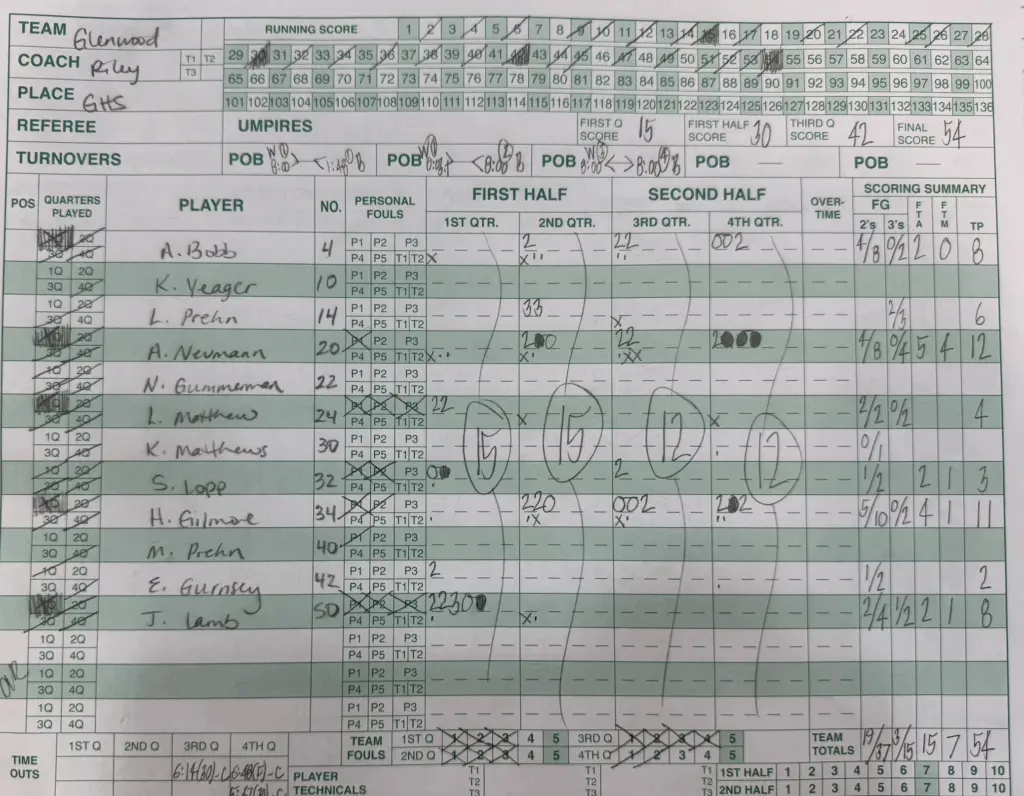 TEAM Glenwood RUNNING SCORE 1 2 3 4 5 6 7 8 9 10 11 12 13 14 15 16 17 18 19 20 21 22 23 24 25 26 27 28
COACH Riley T1 T2 T3 29 30 31 32 33 34 35 36 37 38 39 40 41 42 43 44 45 46 47 48 49 50 51 52 53 54 55 56 57 58 59 60 61 62 63 64
65 66 67 68 69 70 71 72 73 74 75 76 77 78 79 80 81 82 83 84 85 86 87 88 89 90 91 92 93 94 95 96 97 98 99 100
PLACE GHS 101 102 103 104 105 106 107 108 109 110 111 112 113 114 115 116 117 118 119 120 121 122 123 124 125 126 127 128 129 130 131 132 133 134 135 136
REFEREE UMPIRES FIRST Q SCORE 15 FIRST HALF SCORE 30 THIRD Q SCORE 42 FINAL SCORE 54
TURNOVERS POB POB POB POB — POB —
POS QUARTERS PLAYED PLAYER NO. PERSONAL FOULS FIRST HALF SECOND HALF OVER-TIME SCORING SUMMARY
1ST QTR. 2ND QTR. 3RD QTR. 4TH QTR. FG 2's 3's FTA FTM TP
A. Bobb 4 P1 P2 P3 2 22 002 4/8 0/2 2 0 8
3Q 4Q P4 P5 T1 T2
1Q 2Q K. Yeager 10 P1 P2 P3
3Q 4Q P4 P5 T1 T2
1Q 2Q L. Prehn 14 P1 P2 P3 33 2/3 6
3Q 4Q P4 P5 T1 T2
A. Neumann 20 P1 P2 P3 22 4/8 0/4 5 4 12
3Q 4Q P4 P5 T1 T2
1Q 2Q N. Gummerman 22 P1 P2 P3
3Q 4Q P4 P5 T1 T2
L. Matthew 24 P1 P2 P3 22 2/2 0/2 4
3Q 4Q P4 P5 T1 T2
1Q 2Q K. Matthews 30 P1 P2 P3 15 15 12 12 0/1
3Q 4Q P4 P5 T1 T2
1Q 2Q S. Lopp 32 P1 P2 P3 2 1/2 2 1 3
3Q 4Q P4 P5 T1 T2
H. Gilmore 34 P1 P2 P3 220 002 5/10 0/2 4 1 11
3Q 4Q P4 P5 T1 T2
1Q 2Q M. Prehn 40 P1 P2 P3
3Q 4Q P4 P5 T1 T2
1Q 2Q E. Gurnsey 42 P1 P2 P3 2 1/2 2
3Q 4Q P4 P5 T1 T2
J. Lamb 50 P1 P2 P3 2/4 1/2 2 1 8
3Q 4Q P4 P5 T1 T2
1Q 2Q P1 P2 P3
3Q 4Q P4 P5 T1 T2
1Q 2Q P1 P2 P3
3Q 4Q P4 P5 T1 T2
1Q 2Q P1 P2 P3
3Q 4Q P4 P5 T1 T2
TIME OUTS 1ST Q 2ND Q 3RD Q 4TH Q TEAM FOULS 1ST Q 1 2 3 4 5 3RD Q 1 2 3 4 5 TEAM TOTALS 19/37 3/15 15 7 54
2ND Q 1 2 3 4 5 4TH Q 1 2 3 4 5
PLAYER TECHNICALS T1 T2 T3 T1 T2 T3 T1 T2 T3 1ST HALF 1 2 3 4 5 6 7 8 9 10
2ND HALF 1 2 3 4 5 6 7 8 9 10